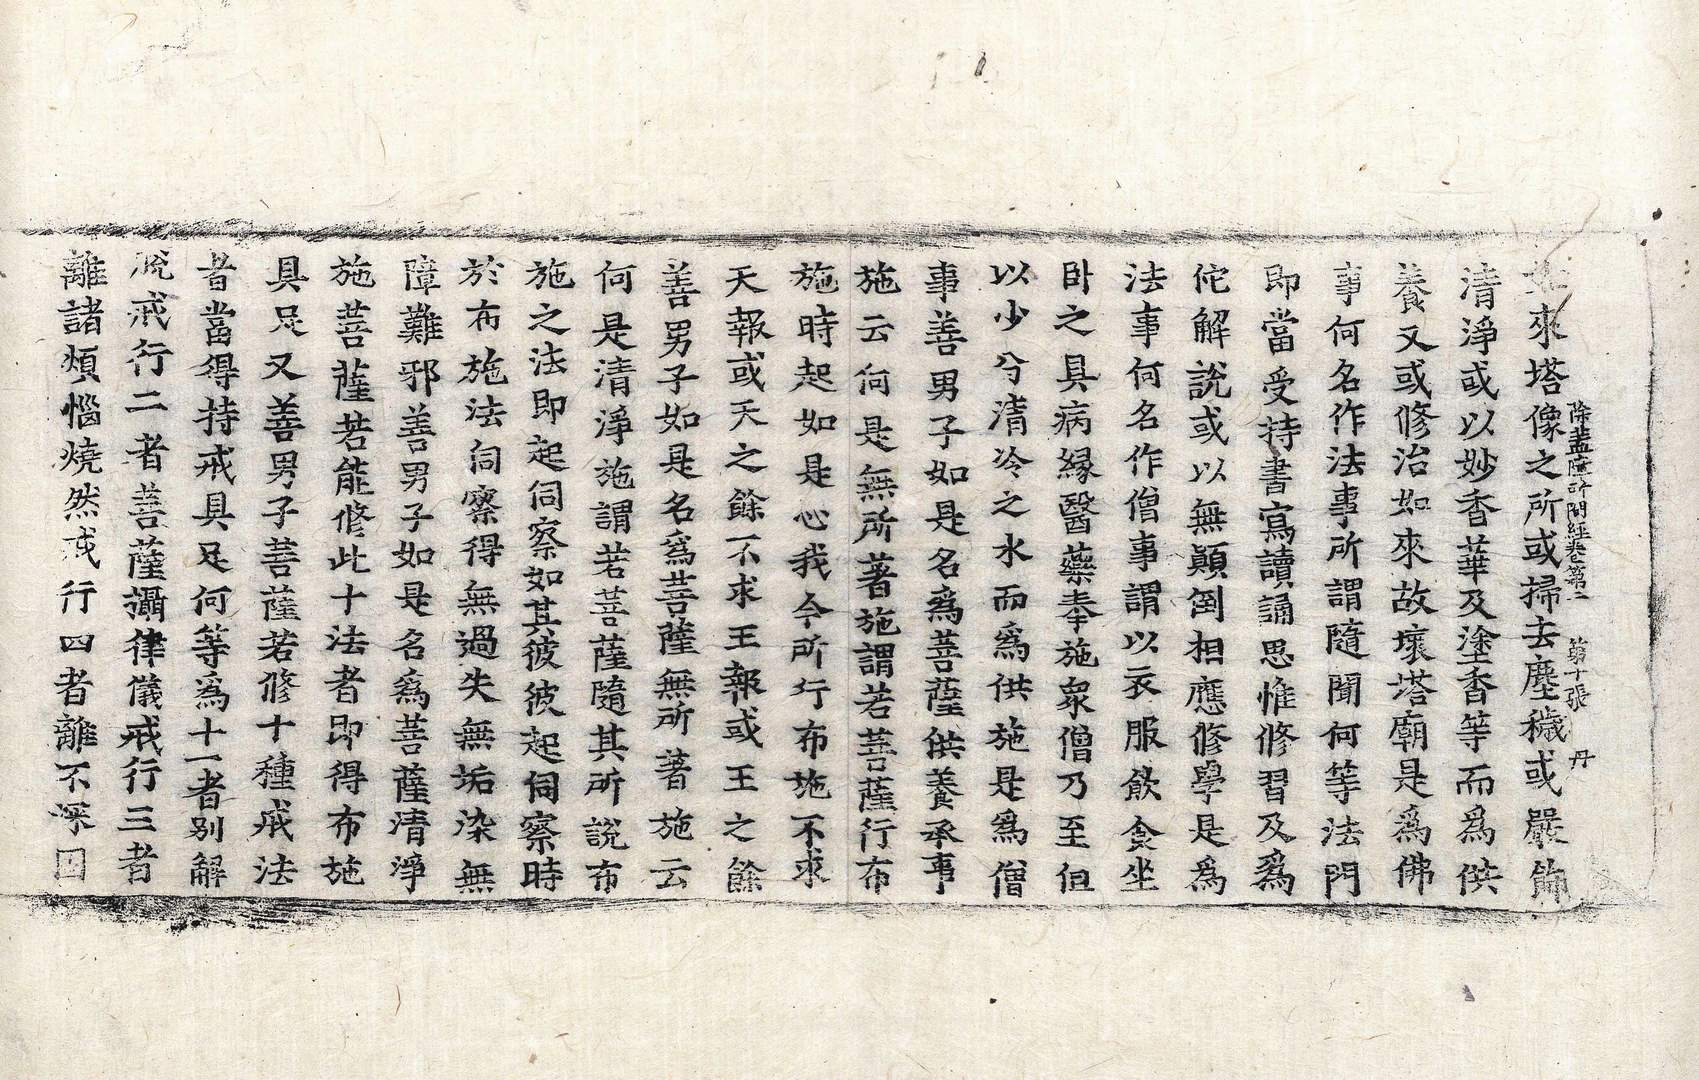 除蓋障所問經卷第二 第十張 丹
如來塔像之所或掃去塵穢或嚴飾
清淨或以妙香華及塗香等而爲供
養又或修治如來故壞塔廟是爲佛
事何名作法事所謂隨聞何等法門
即當受持書寫讀誦思惟修習及爲
佗解說或以無顚倒相應修學是爲
法事何名作僧事謂以衣服飲食坐
卧之具病縁醫藥奉施衆僧乃至但
以少分清冷之水而爲供施是爲僧
事善男子如是名爲菩薩供養承事
施云何是無所著施謂若菩薩行布
施時起如是心我今所行布施不求
天報或天之餘不求王報或王之餘
善男子如是名爲菩薩無所著施云
何是清淨施謂若菩薩隨其所說布
施之法即起伺察如其彼彼起伺察時
於布施法伺察得無過失無垢染無
障難邪善男子如是名爲菩薩清淨
施菩薩若能修此十法者即得布施
具足又善男子菩薩若修十種戒法
者當得持戒具足何等爲十一者別解
脫戒行二者菩薩攝律儀戒行三者
離諸煩惱燒然戒行四者離不深固